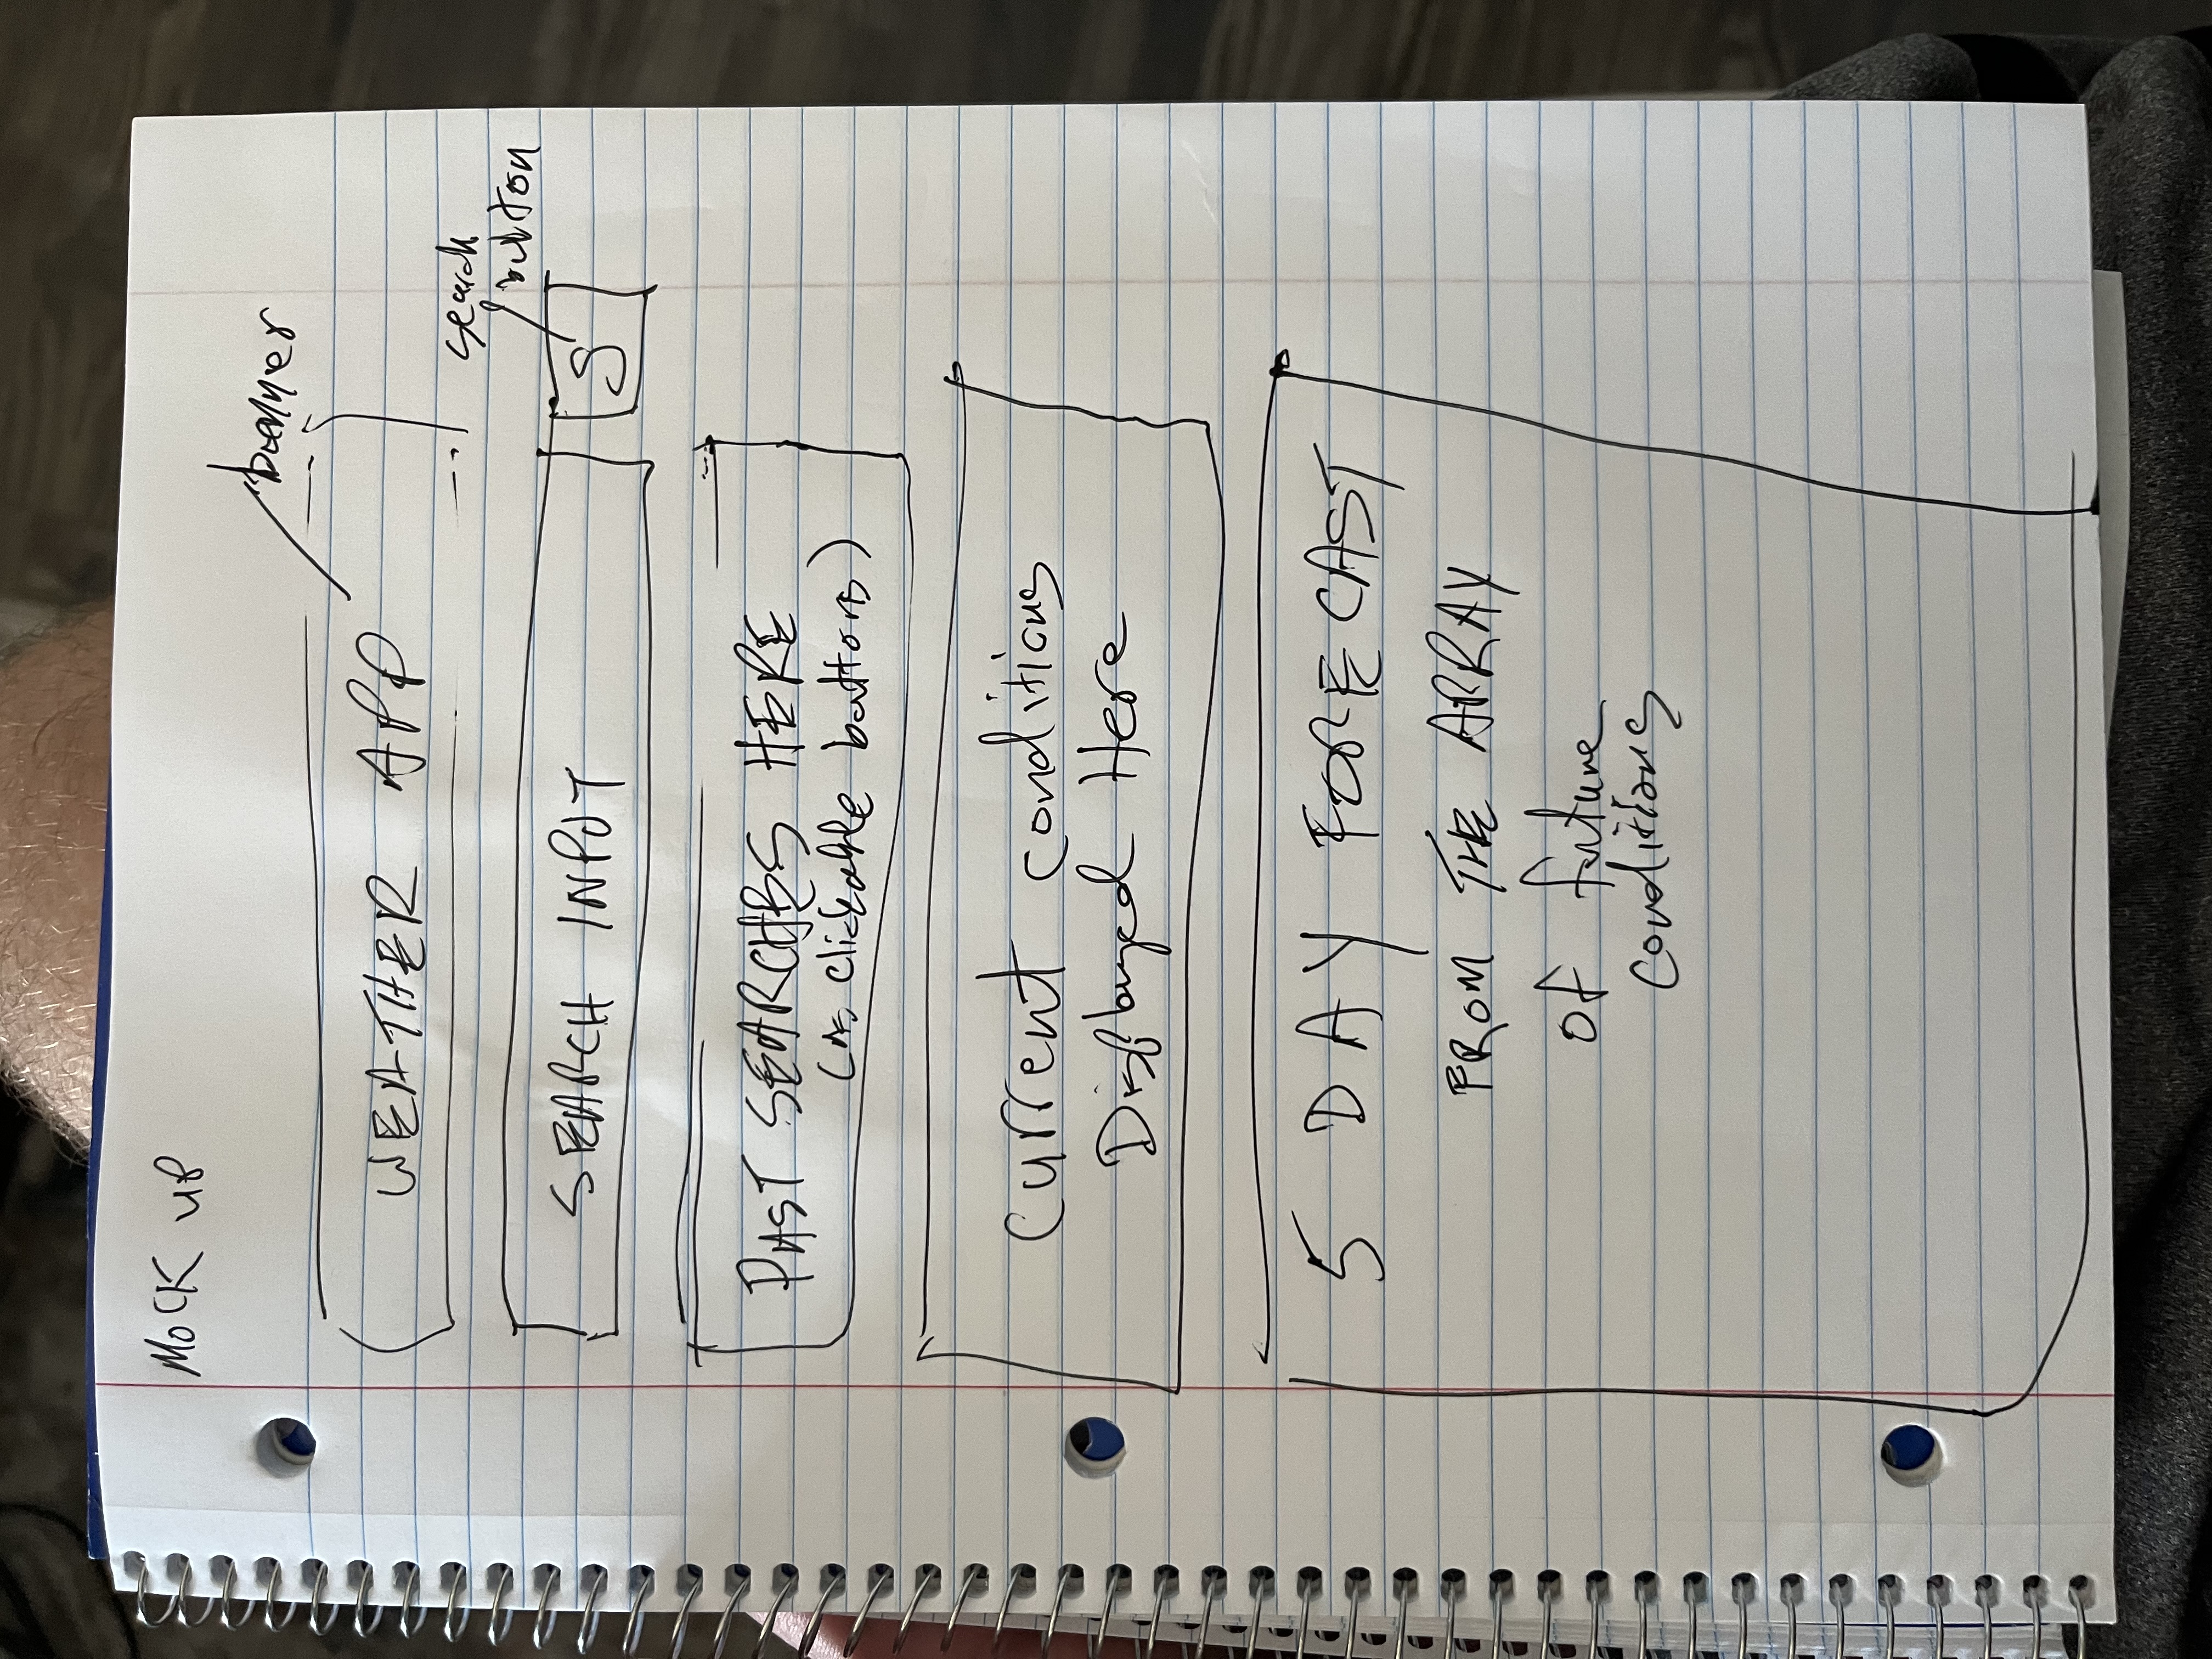 MOCK UP
banner
WEATHER APP
search
button
SEARCH INPUT
S
PAST SEARCHES HERE
(as clickable buttons)
Current conditions
Displayed Here
5 DAY FORECAST
FROM THE ARRAY
of future
conditions